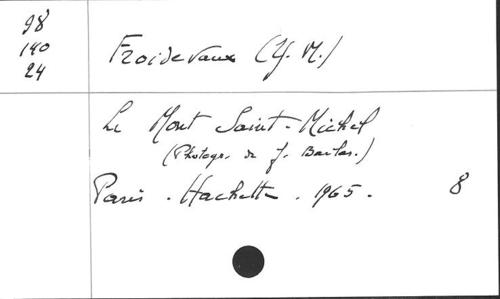 98
140
24
Froidevaux (Y. M.)
Le Mont Saint-Michel
(Photogr. de J. Barlas.)
Paris. Hachette. 1965. 8